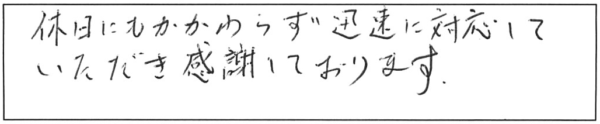 休日にもかかわらず迅速に対応して
いただき感謝しております.